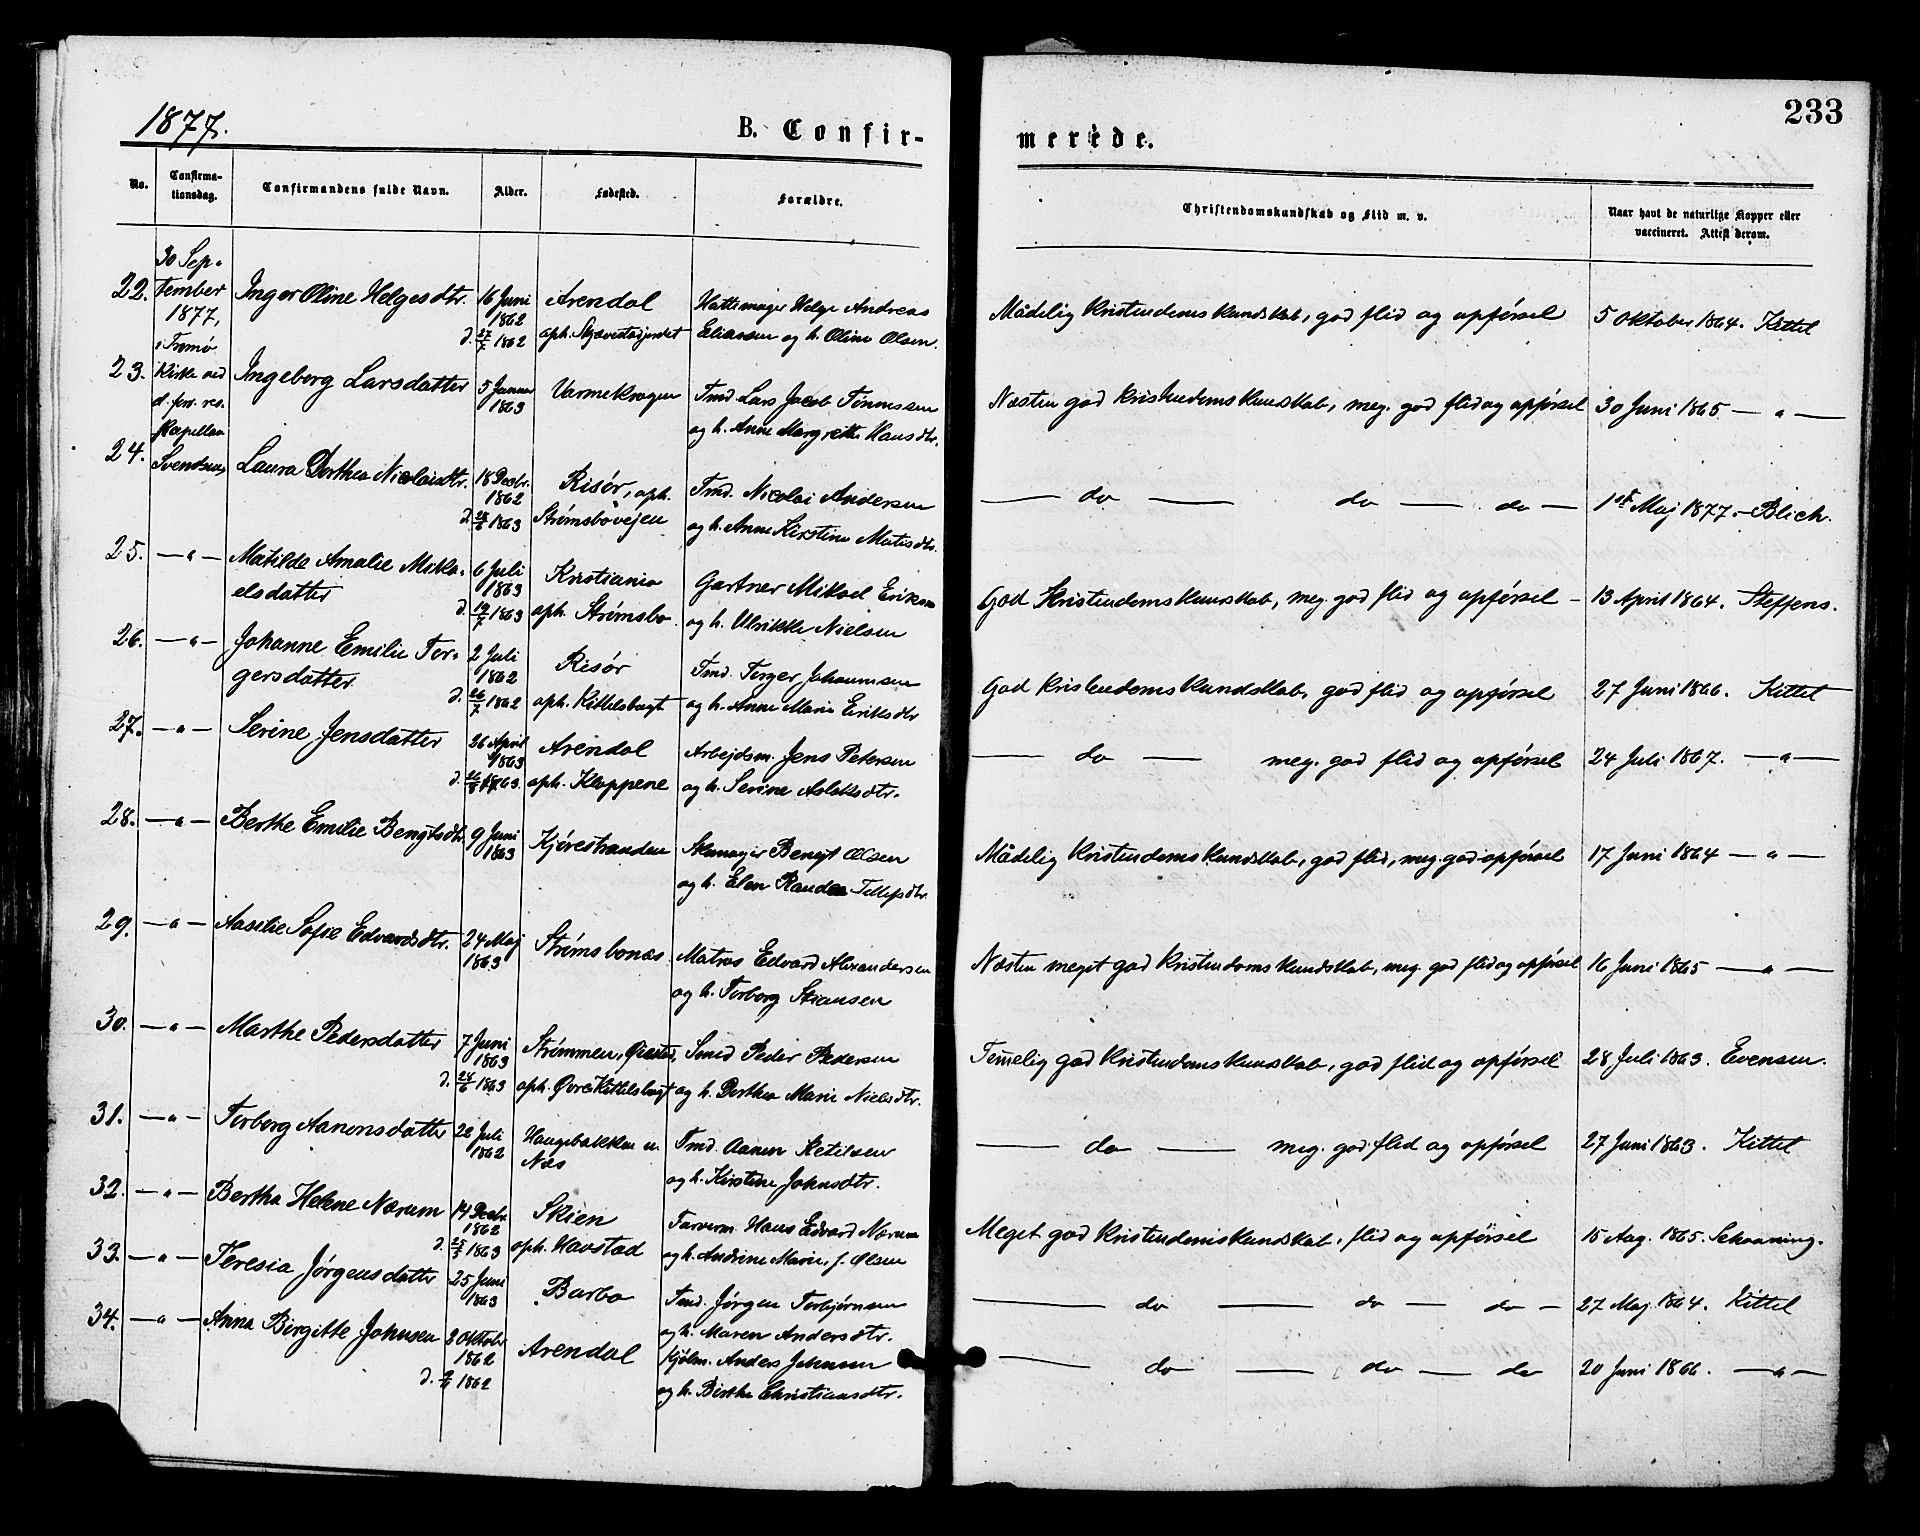 1877.
B. Confir-
merede.
233
No.
Confirma-
tionsdag.
Confirmandens fulde Navn.
Alder.
Fødested.
Forældre.
Christendomskundskab og Flid m. v.
Naar havt de naturlige Kopper eller
vaccineret. Attest derom.
30 Sep-
tember
1877,
i Tromø
Kirke ved
d. pers. res.
Kapellan
Svendsen
22. Inger Oline Helgesdtr. 16 Juni Arendal Hattemager Helge Andreas Mådelig kristendomskundskab, god flid og opførsel 5 Oktober 1864. Kittel
1862
d. 27/7 1862 oph. Eliassen og h. Oline Olsen.
23. Ingeborg Larsdatter 5 Januar Varmekrogen Tmd. Lars Jacob Tønnessen Næsten god kristendomskundskab, meg. god flid og opførsel 30 Juni 1865 — " —
1863
og h. Anne Margrethe Hansdtr.
24. Laura Dorthea Nicolaisdtr. 18 Decbr. Risør, oph. Tmd. Nicolai Andersen — do — do — do — 1st Maj 1877. — Blich.
1862
1863 Strømsbovejen og h. Anne Kirstine Matisdtr.
25. — " — Matilde Amalie Mika- 6 Juli Kristiania Gartner Mikael Eriksen God Kristendomskundskab, meg. god flid og opførsel — 13 April 1864. Steffens.
elsdatter 1863
d. 19/7 1863 oph. Strømsbo. og h. Ulrikke Nielsen
26. — " — Johanne Emilie Tor- 2 Juli Risør Tmd. Torger Johannesen God kristendomskundskab, god flid og opførsel 27 Juni 1866. Kittel
gersdatter 1862
d. 26/7 1862 oph. Kittelsbugt og h. Anne Marie Eriksdtr
27. — " — Serine Jensdatter 26 April Arendal Arbejdsm. Jens Petersen — do — meg. god flid og opførsel 24 Juli 1867. — " —
1863
1863. oph. Kloppene og h. Serine Aslaksdtr.
28. — " — Berthe Emilie Bengtsdtr 9 Juni Kjørestranden Skomager Bengt Olsen Mådelig kristendomskundskab, god flid, meg. god opførsel 17 Juni 1864 — " —
1863
og h. Elen Randea Tellefsdtr.
29. — " — Aasilie Sofie Edvardsdtr. 24 Maj Strømsbonæs. Matros Edvard Alexandersen Næsten meget god kristendomskundskab, meg. god flid og opførsel 16 Juni 1865 — " —
1863
og h. Torborg Stiansen
30. — " — Marthe Pedersdatter 7 Juni Strømmen, Øiestad, Smed Peder Pedersen Temelig god kristendomskundskab, god flid og opførsel 28 Juli 1863. Evensen.
1863
d. 24/6 1863 oph. Øvre Kittelsbugt og h. Dorthea Marie Nielsdtr.
31. — " — Torborg Aanonsdatter 22 Juli Haugebakken u. Tmd. Aanon Ketilsen — do — meg. god flid og opførsel 27 Juni 1863. Kittel
1862 Næs
og h. Kirstine Johnsdtr.
32. — " — Bertha Helene Nærum 14 Decbr. Skien Farverm. Hans Edvard Nærum Meget god Kristendomskundskab, flid og opførsel 15 Aug. 1865. Schanning.
1862
d. 1863 oph. Havstad og h. Andrine Marie, f. Olsen
33. — " — Teresia Jørgensdatter 25 Juni Barbo Tmd. Jørgen Torbjørnsen — do — do — do — 27 Maj 1864. Kittel
1863
og h. Maren Andersdtr.
34. — " — Anna Birgitte Johnsen 2 Oktobr Arendal Kjølm. Anders Johnsen — do — do — do 20 Juni 1866. — " —
1862
d. 1862 og h. Birthe Christiansdtr.